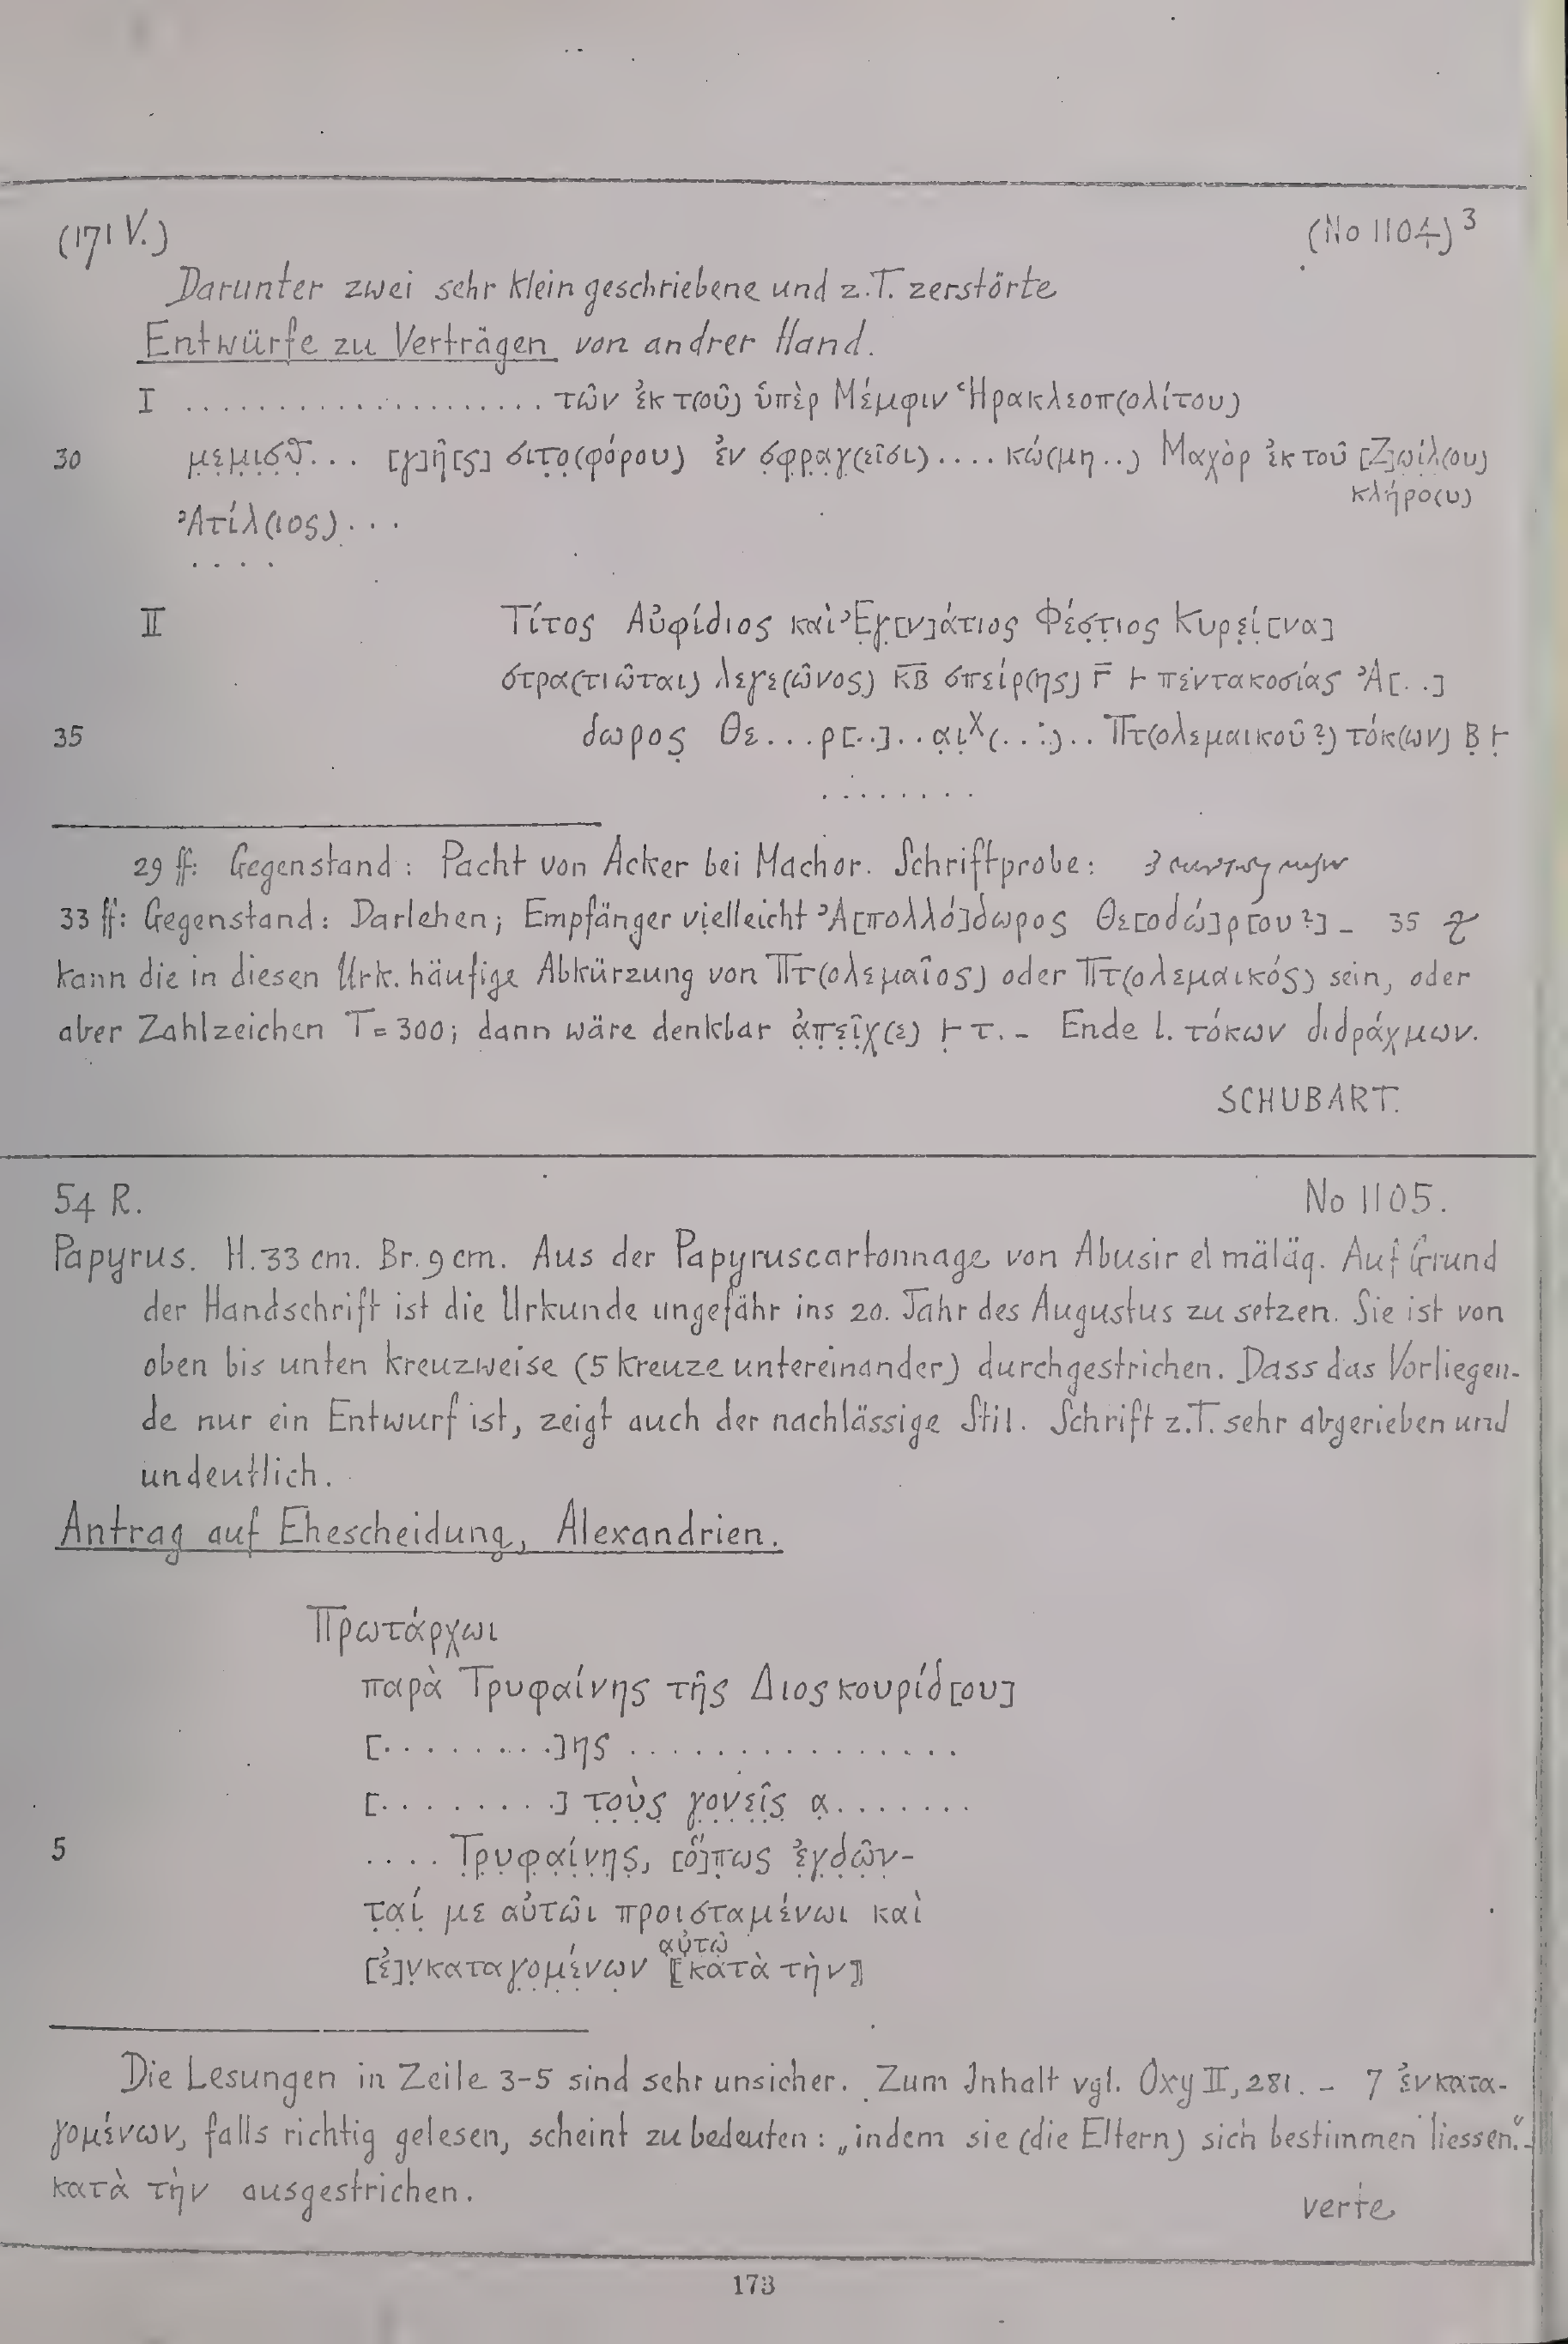 (171 V.) (No 1104)³
Darunter zwei sehr klein geschriebene und z.T. zerstörte
Entwürfe zu Verträgen von andrer Hand.
I .................... τῶν ἐκ τ(οῦ) ὑπὲρ Μέμφιν Ἡρακλεοπ(ολίτου)
30 μ̣ε̣μ̣ι̣σ̣θ̣... [γ]ῆ[ς] σιτ̣ο̣(φόρου) ἐν σ̣φ̣ρ̣α̣γ̣(εῖσι).... κώ(μη..) Μαχὸρ ἐκ τοῦ [Ζ]ω̣ί̣λ(ου)
κλήρο(υ)
Ἀτίλ(ιος)...
....
II Τίτος Αὐφίδιος καὶ Ἐγ̣[ν]άτιος Φέσ̣τ̣ιος Κυρε̣ί̣[να]
στρα(τιῶται) λεγε(ῶνος) Κ̅Β̅ σπείρ(ης) Γ̅ ⊢ πεντακοσίας Ἀ[..]
35 δωρος̣ Θε...ρ[..]..α̣ι̣ˣ(...).. Πτ(ολεμαικοῦ?) τόκ(ων) Β̣ ⊢̣
........
29 ff: Gegenstand: Pacht von Acker bei Machor. Schriftprobe:
33 ff: Gegenstand: Darlehen; Empfänger vielleicht Ἀ[πολλό]δωρος Θε[οδώ]ρ[ου?] – 35
kann die in diesen Urk. häufige Abkürzung von Πτ(ολεμαῖος) oder Πτ(ολεμαικός) sein, oder
aber Zahlzeichen T = 300; dann wäre denkbar ἀ̣π̣ε̣ῖ̣χ̣(ε) ⊢̣ τ. – Ende l. τόκων διδράχμων.
SCHUBART.
54 R. No 1105.
Papyrus. H. 33 cm. Br. 9 cm. Aus der Papyruscartonnage von Abusir el mäläq. Auf Grund
der Handschrift ist die Urkunde ungefähr ins 20. Jahr des Augustus zu setzen. Sie ist von
oben bis unten kreuzweise (5 Kreuze untereinander) durchgestrichen. Dass das Vorliegen-
de nur ein Entwurf ist, zeigt auch der nachlässige Stil. Schrift z.T. sehr abgerieben und
undeutlich.
Antrag auf Ehescheidung, Alexandrien.
Πρωτάρχωι
παρὰ Τρυφαίνης τῆς Διοσκουρίδ[ου]
[.........]ης ................
[.........] τ̣ο̣ὺ̣ς̣ γ̣ο̣ν̣ε̣ῖ̣ς̣ α̣.......
5 .... Τ̣ρ̣υ̣φ̣α̣ί̣ν̣η̣ς̣, [ὅ]π̣ως ἐ̣γ̣δ̣ῶ̣ν̣-
τ̣α̣ί̣ με αὐτῶι προισταμένωι καὶ
α̣ὐ̣τῶ̣
[ἐ]ν̣καταγ̣ο̣μ̣έ̣ν̣ων̣ ⟦κατὰ τὴν⟧
Die Lesungen in Zeile 3-5 sind sehr unsicher. Zum Inhalt vgl. Oxy II, 281. – 7 ἐνκατα-
γομένων, falls richtig gelesen, scheint zu bedeuten: „indem sie (die Eltern) sich bestimmen liessen.“ –
κατὰ τὴν ausgestrichen.
verte
173